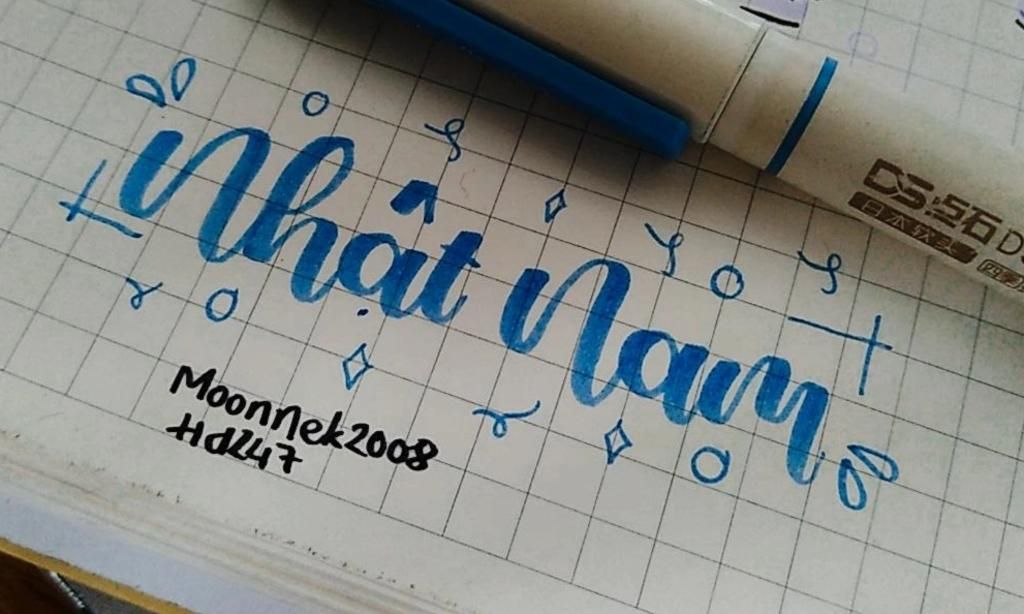 Nhật Nam
Moonnek2008
Hd247
DS.点石
日本软头